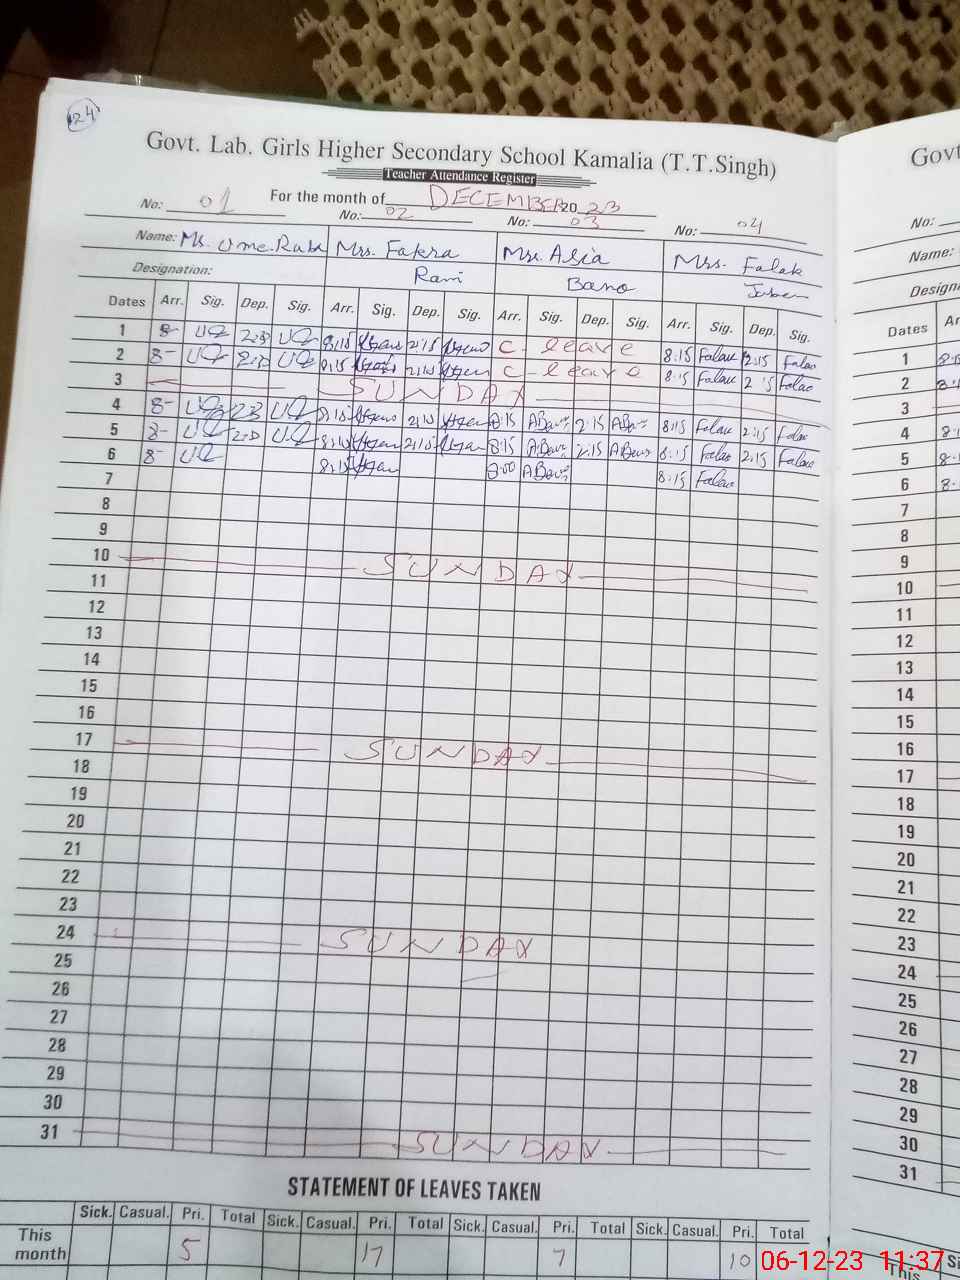 24
Govt. Lab. Girls Higher Secondary School Kamalia (T.T.Singh)
Teacher Attendance Register
For the month of DECEMBER 20 23
No: 01 No: 02 No: 03 No: 04
Name: Ms. Ume Ruba Mrs. Fakra Mrs. Asia Mrs. Falak
Designation: Rani Bano
Dates Arr. Sig. Dep. Sig. Arr. Sig. Dep. Sig. Arr. Sig. Dep. Sig. Arr. Sig. Dep. Sig.
1 8- 8:15 2:15 C- leave 8:15 Falak 2:15 Falak
2 8- 8:15 2:15 C- leave 8:15 Falak 2:15 Falak
3 SUNDAY
4 8- 8:15 2:15 8:15 ABano 2:15 ABano 8:15 Falak 2:15 Falak
5 8- 8:15 2:15 8:15 ABano 2:15 ABano 8:15 Falak 2:15 Falak
6 8- 8:15 8:00 ABano 8:15 Falak
7
8
9
10 SUNDAY
11
12
13
14
15
16
17 SUNDAY
18
19
20
21
22
23
24 SUNDAY
25
26
27
28
29
30
31 SUNDAY
STATEMENT OF LEAVES TAKEN
Sick. Casual. Pri. Total Sick. Casual. Pri. Total Sick. Casual. Pri. Total Sick. Casual. Pri. Total
This month 5 17 7 10
Govt
No:
Name:
Dates
1
2
3
4
5
6
7
8
9
10
11
12
13
14
15
16
17
18
19
20
21
22
23
24
25
26
27
28
29
30
31
This
06-12-23 11:37